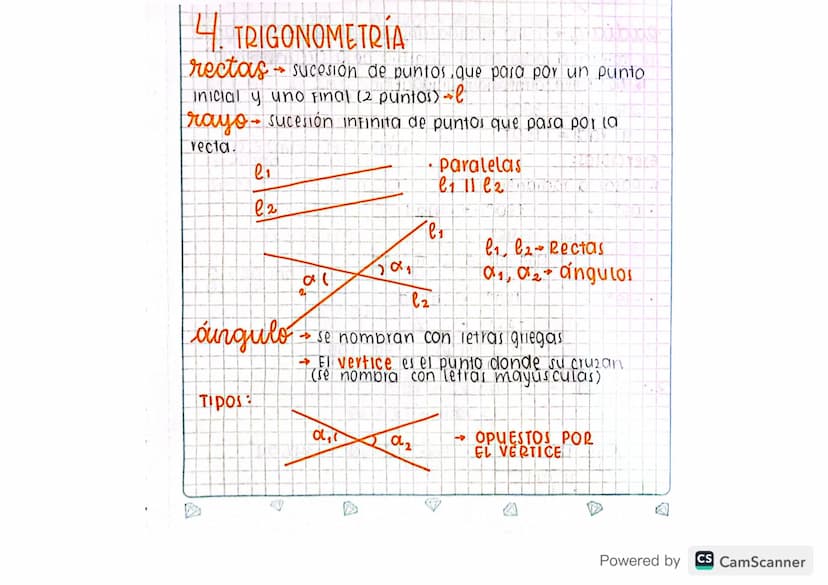 4. TRIGONOMETRÍA
rectas → sucesión de puntos, que pasa por un punto
inicial y uno final (2 puntos) → l
rayo → sucesión infinita de puntos que pasa por la
recta.
l1
· paralelas
l1 || l2
l2
l1
l1, l2 → Rectas
α1
α1, α2 → ángulos
α
2
l2
ángulo → se nombran con letras griegas
→ El vertice es el punto donde su cruzan
(se nombra con letras mayúsculas)
Tipos:
α1
α2
→ OPUESTOS POR
EL VÉRTICE
Powered by CS CamScanner